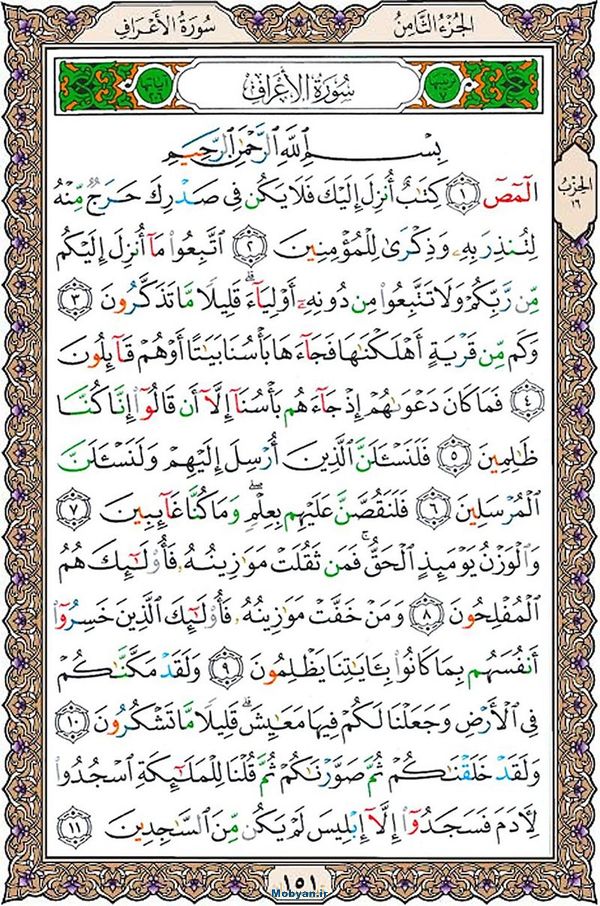 الجزء الثامن
سورة الأعراف
سُورَةُ الأَعۡرَافِ
الحِزۡبُ
١٦
بِسۡمِ ٱللَّهِ ٱلرَّحۡمَٰنِ ٱلرَّحِيمِ
الٓمٓصٓ ١ كِتَٰبٌ أُنزِلَ إِلَيۡكَ فَلَا يَكُن فِى صَدۡرِكَ حَرَجٌ مِّنۡهُ
لِتُنذِرَ بِهِۦ وَذِكۡرَىٰ لِلۡمُؤۡمِنِينَ ٢ ٱتَّبِعُواْ مَآ أُنزِلَ إِلَيۡكُم
مِّن رَّبِّكُمۡ وَلَا تَتَّبِعُواْ مِن دُونِهِۦٓ أَوۡلِيَآءَۗ قَلِيلًا مَّا تَذَكَّرُونَ ٣
وَكَم مِّن قَرۡيَةٍ أَهۡلَكۡنَٰهَا فَجَآءَهَا بَأۡسُنَا بَيَٰتًا أَوۡ هُمۡ قَآئِلُونَ
٤ فَمَا كَانَ دَعۡوَىٰهُمۡ إِذۡ جَآءَهُم بَأۡسُنَآ إِلَّآ أَن قَالُوٓاْ إِنَّا كُنَّا
ظَٰلِمِينَ ٥ فَلَنَسۡـَٔلَنَّ ٱلَّذِينَ أُرۡسِلَ إِلَيۡهِمۡ وَلَنَسۡـَٔلَنَّ
ٱلۡمُرۡسَلِينَ ٦ فَلَنَقُصَّنَّ عَلَيۡهِم بِعِلۡمٍۖ وَمَا كُنَّا غَآئِبِينَ ٧
وَٱلۡوَزۡنُ يَوۡمَئِذٍ ٱلۡحَقُّۚ فَمَن ثَقُلَتۡ مَوَٰزِينُهُۥ فَأُوْلَٰٓئِكَ هُمُ
ٱلۡمُفۡلِحُونَ ٨ وَمَنۡ خَفَّتۡ مَوَٰزِينُهُۥ فَأُوْلَٰٓئِكَ ٱلَّذِينَ خَسِرُوٓاْ
أَنفُسَهُم بِمَا كَانُواْ بِـَٔايَٰتِنَا يَظۡلِمُونَ ٩ وَلَقَدۡ مَكَّنَّٰكُمۡ
فِى ٱلۡأَرۡضِ وَجَعَلۡنَا لَكُمۡ فِيهَا مَعَٰيِشَۗ قَلِيلًا مَّا تَشۡكُرُونَ ١٠
وَلَقَدۡ خَلَقۡنَٰكُمۡ ثُمَّ صَوَّرۡنَٰكُمۡ ثُمَّ قُلۡنَا لِلۡمَلَٰٓئِكَةِ ٱسۡجُدُواْ
لِأٓدَمَ فَسَجَدُوٓاْ إِلَّآ إِبۡلِيسَ لَمۡ يَكُن مِّنَ ٱلسَّٰجِدِينَ ١١
١٥١
Mobyan.ir